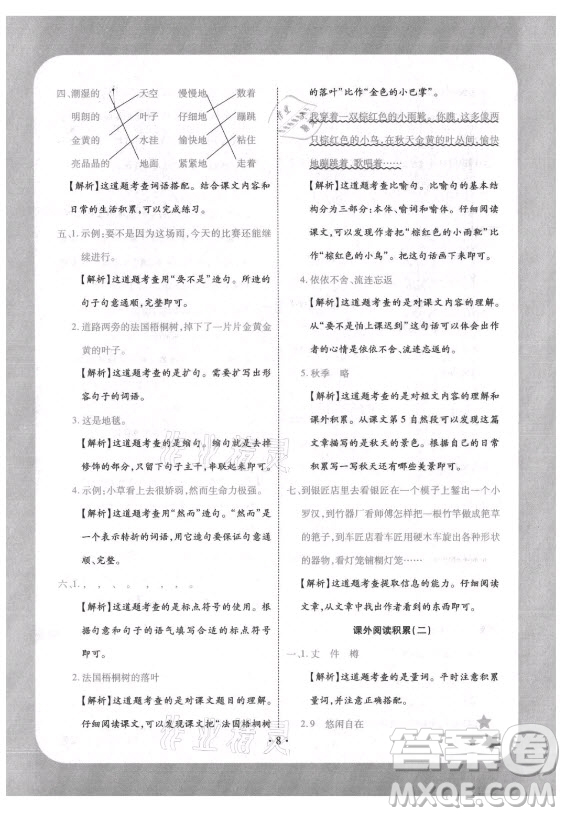 四、潮湿的 天空 慢慢地 数着
明朗的 叶子 仔细地 蹦跳
金黄的 水洼 愉快地 粘住
亮晶晶的 地面 紧紧地 走着
【解析】这道题考查词语搭配。结合课文内容和
日常的生活积累,可以完成练习。
五、1. 示例:要不是因为这场雨,今天的比赛还能继
续进行。
【解析】这道题考查用“要不是”造句。所造的
句子句意通顺,完整即可。
2. 道路两旁的法国梧桐树,掉下了一片片金黄金
黄的叶子。
【解析】这道题考查的是扩句。扩句需要扩写
出形容句子的词语,完整即可。
3. 这是地毯。
【解析】这道题考查的是缩句。缩句就是去掉
修饰的部分,只保留主干,串联起来即可。
4. 示例:小草看上去很娇弱,然而生命力极强。
【解析】这道题考查用“然而”造句。“然而”是一
个表示转折的词语,用它造句要保证句意通
顺、完整。
六、1. , , , 。 , 。 , 。
【解析】这道题考查的是标点符号的使用。根
据句意和句子的语气填写合适的标点符号即
可。
2. 法国梧桐树的落叶
【解析】这道题考查的是对课文题目的理解。
仔细阅读课文,可以发现课文把“法国梧桐树
的落叶”比作“金色的小巴掌”。
我穿着一双棕红色的小雨靴。你瞧,这多像两
只棕红色的小鸟,在秋天金黄的叶丛间,愉快
地蹦跳着,歌唱着……
【解析】这道题考查比喻句。比喻句的基本结
构分为三部分:本体、喻词和喻体。仔细阅读课
文,可以发现作者把“棕红色的小雨靴”比作
“棕红色的小鸟”。把这句话画下来即可。
4. 依依不舍、流连忘返
【解析】这道题考查的是对课文内容的理解。
从“要不是怕上课迟到”这句话可以看出,作
者的心情是依依不舍、流连忘返。
5. 秋季 略
【解析】这道题考查的是对短文内容的理解和
课外积累。从课文第 5 自然段可以发现这篇
文章描写的是秋天的景色。根据自己的日常
积累,可以写出还有哪些美景即可。
七、到银匠店里去看银匠在一个模子上錾出一个小
罗汉,到竹器厂看师傅怎样把一根竹竿做成筢草
的筢子,到车匠店看车匠用硬木车旋出各种形状
的器物,看灯笼铺糊灯笼……
【解析】这道题考查提取信息的能力。仔细阅读
文章,文章中作者具体列举出来的东西即可。
课外阅读积累(二)
一、1. 丈 件 樽
【解析】这道题考查的是量词。平时注意积累
量词,根据题意正确搭配。
2. 9 悠闲自在
· 8 ·
作业精灵
作业精灵
答案圈
MXQE.COM